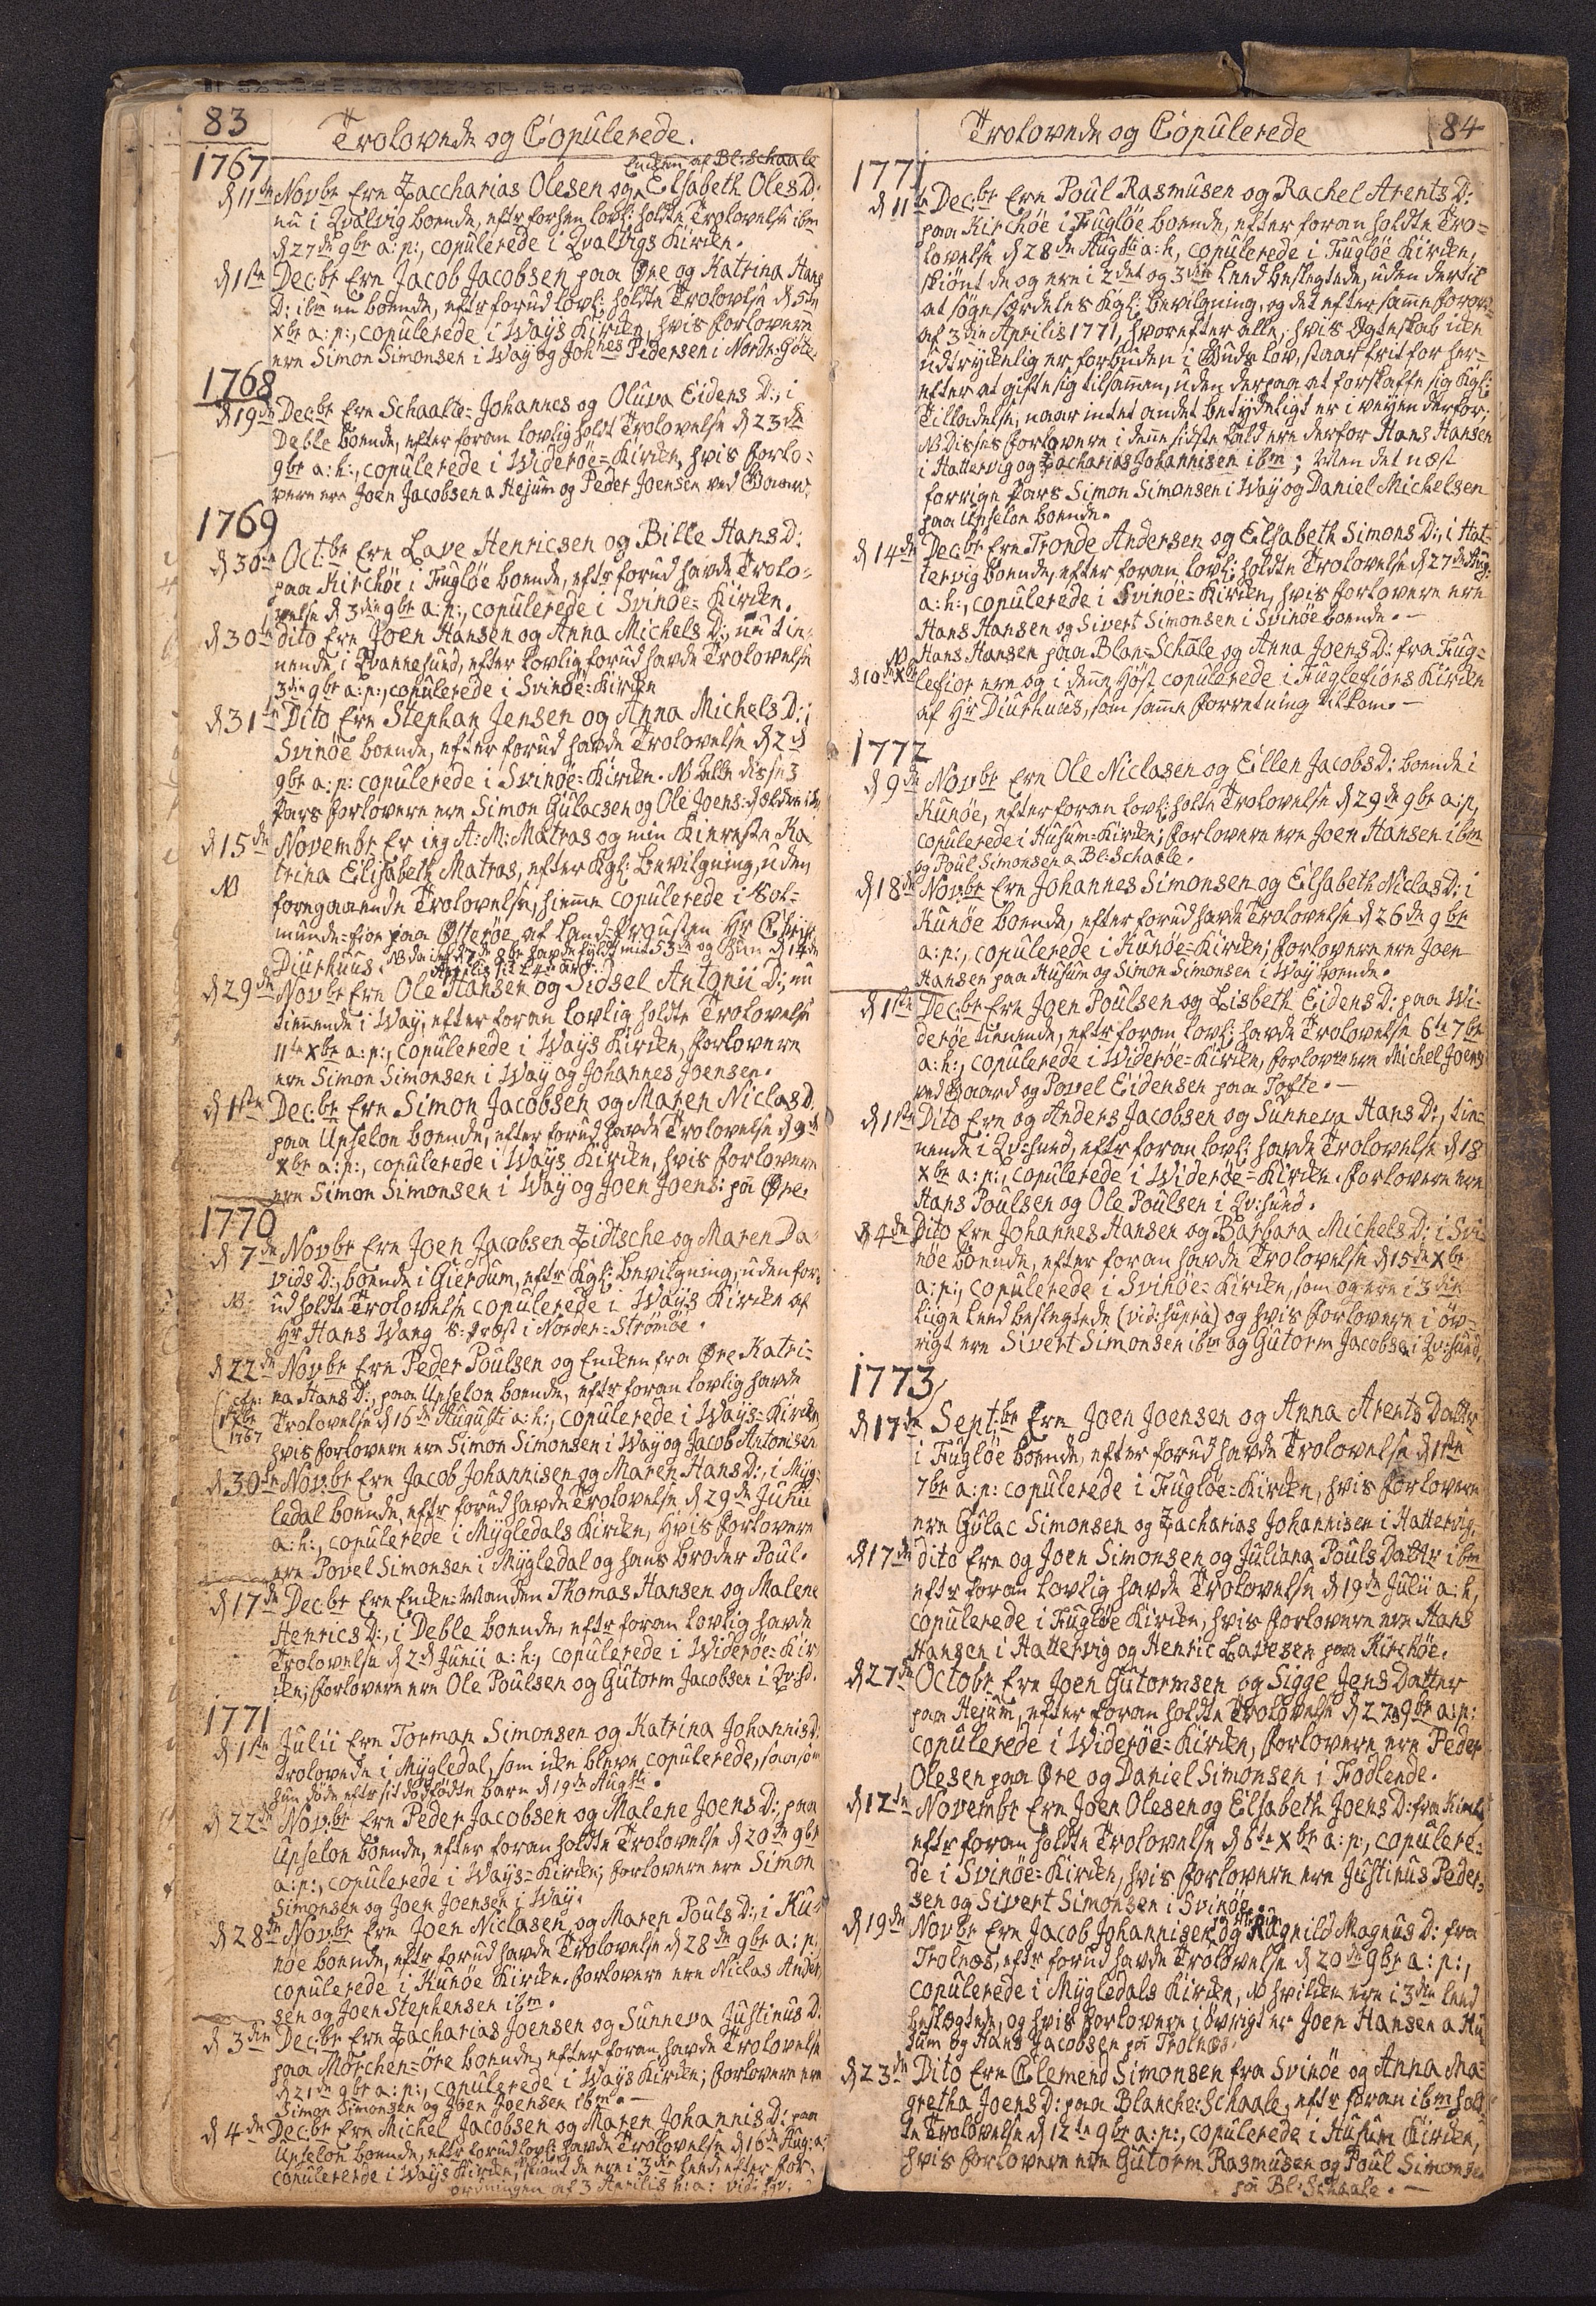 83
Trolovede og Copulerede.
1767
Enken af Bl: Schaale
d 11te Novbr Ere Zaccharias Olesen og Elsabeth Oles D:
nu i Qvalvig boende, eftr forhen lovl: holdte Trolovelse ibm
d 27de 9br a: p:, copulerede i Qvalvigs Kirken.
d 1ste Decbr Ere Jacob Jacobsen paa Øre og Katrina Hans
D: ibm nu boende, eftr forud lovl: holdte Trolovelse d 5te
Xbr a: p:, copulerede i Ways Kirken, hvis forlovere
ere Simon Simonsen i Way og Johnes Pedersen i Nordr-Gøte.
1768
d 19de Decbr Ere Schaalte-Johannes og Oluva Eidens D:, i
Deble boende, efter foran lovlig holdt Trolovelse d 23de
9br a: h:, copulerede i Widerøe-Kirken, hvis forlo-
vere ere Joen Jacobsen a Hejum og Peder Joensen ved Gaard.
1769
d 30te Octbr Ere Lave Henricsen og Bille Hans D:
paa Kirchøe i Fugløe boende, eftr forud havde Trolo-
velse d 3die 9br a: p:, copulerede i Svinøe-Kirken.
d 30te dito Ere Joen Hansen og Anna Michels D:, nu tie-
nende i Qvannesund, efter lovlig forud havde Trolovelse
3die 9br a: p:, copulerede i Svinøe-Kirken
d 31te Dito Ere Stephan Jensen og Anna Michels D: i
Svinøe boende, efter forud havde Trolovelse d 2d
9br a: p: copulerede i Svinøe-Kirken. NB alle disse 3
Pars forlovere ere Simon Gulacsen og Ole Joens: d ældre ibm
d 15de Novembr Er ieg A: M: Matras og min Kiereste Ka
NB trina Elisabeth Matras, efter Kgl: bevilgning, uden
foregaaende Trolovelse, hiemme copulerede i Sol-
munde-fior paa Østerøe af Land-Prousten Hr Christ
Diurhuus. NB da ieg d 7de 8br havde fyldt mit 53de og hun d 14de
Aprilis sit 24de aar.
d 29de Novbr Ere Ole Hansen og Sidsel Antonii D:, nu
tienende i Way, efter foran lovlig holdte Trolovelse
11te Xbr a: p:, copulerede i Ways Kirken, forlovere
ere Simon Simonsen i Way og Johannes Joensen.
d 1ste Decbr Ere Simon Jacobsen og Maren Niclas D.
paa Upselon boende, efter forud havde Trolovelse d 9de
Xbr a: p:, copulerede i Ways Kirken, hvis forlovere
ere Simon Simonsen i Way og Joen Joens: på Øre.
1770
d 7de Novbr Ere Joen Jacobsen Zidtsche og Maren Da-
vids D:, boende i Gierdum, eftr Kgl: bevilgning, uden for-
NB. ud holdte Trolovelse copulerede i Ways Kirken af
Hr Hans Wang S: Præst i Norder-Strømøe.
d 22de Novbr Ere Peder Poulsen og Enken fra Øre Katri-
(cfr: na Hans D:, paa Upselon boende, eftr foran lovlig havde
1ste Xbr 1767 Trolovelse d 16de Augusti a: h:, copulerede i Ways-Kirken
hvis forlovere ere Simon Simonsen i Way og Jacob Antonisen
d 30te Novbr Ere Jacob Johannisen og Maren Hans D:, i Myg-
ledal boende, eftr forud havde Trolovelse d 29de Junii
a: h:, copulerede i Mygledals Kirken, Hvis forlovere
ere Povel Simonsen i Mygledal og hans broder Poul.
d 17de Decbr Ere Enke-Manden Thomas Hansen og Malene
Henrics D:, i Deble boende, eftr foran lovlig havde
Trolovelse d 2d Junii a: h:, copulerede i Widerøe-Kir-
ken; forlovere ere Ole Poulsen og Gutorm Jacobsen i Qv:sd.
1771
d 1ste Julii Ere Torman Simonsen og Katrina Johannis D:
trolovede i Mygledal, som iken bleve copulerede, saasom
hun døde eftr sit dødfødte barn d 19de Augsti.
d 22de Novbr Ere Peder Jacobsen og Malene Joens D:, paa
Upselon boende, efter foran holdte Trolovelse d 20de 9br
a: p:, copulerede i Ways-Kirken; forlovere ere Simon
Simonsen og Joen Joensen i Way.
d 28de Novbr Ere Joen Niclasen og Maren Pouls D:, i Ku-
nøe boende, eftr forud havde Trolovelse d 28de 9br a: p:,
copulerede i Kunøe Kirken. forlovere ere Niclas Ander-
sen og Joen Stephensen ibm.
d 3die Decbr Ere Zacharias Joensen og Sunneva Justinus D.
paa Mørchen-øre boende, efter foran havde Trolovelse
d 21de 9br a: p:, copulerede i Ways Kirken; forlovere ere
Simon Simonsen og Joen Joensen ibm. —
d 4de Decbr Ere Michel Jacobsen og Maren Johannis D: paa
Upselon boende, eftr forud lovl: havde Trolovelse d 16de Aug: a:
copulerede i Ways Kirken, skiønt de ere i 3die leed, efter for-
ordningen af 3 Aprilis h: a: vid: sqv:
84
Trolovede og Copulerede
1771
d 11te Decbr Ere Poul Rasmusen og Rachel Arents D:
paa Kirchøe i Fugløe boende, efter foran holdte Tro-
lovelse d 28de Augsti a: h, copulerede i Fugløe Kirken,
skiønt de og ere i 2det og 3die Leed beslegtede, uden dertil
at søge særdeles Kgl: bevilgning, og det efter samme forord:
af 3die Aprilis 1771, hvorefter alle, hvis Egteskab iken
udtrykelig er forbuden i Guds lov, staar frit for her-
efter at gifte sig tilsammen, uden derpaa at forskaffe sig Kgl:
Tilladelse, naar intet andet betydeligt er i veyen derfor;
NB Disses forlovere i denne sidste fald ere derfor Hans Hansen
i Hattervig og Zacharias Johannisen ibm; Men det næst
forrige Pars Simon Simonsen i Way og Daniel Michelsen
paa Upselon boende.
d 14de Decbr Ere Tronde Andersen og Elsabeth Simons D:, i Hat-
tervig boende, efter foran lovl: holdte Trolovelse d 27de Aug:
a: h:, copulerede i Svinøe-Kirken, hvis forlovere ere
Hans Hansen og Sivert Simonsen i Svinøe boende. —
NB Hans Hansen paa Blan-Schåle og Anna Joens D: fra Fug-
d 10de Xbr lefior ere og i denne Høst copulerede i Fuglefiors Kirken
af Hr Diurhuus, som samme forretning tilkom. —
1772
d 9de Novbr Ere Ole Niclasen og Eillen Jacobs D: boende i
Kunøe, efter foran lovl: holte Trolovelse d 29de 9br a: p,
copulerede i Husum-Kirken; forlovere ere Joen Hansen ibm
og Poul Simonsen a Bl: Schaale.
d 18de Novbr Ere Johannes Simonsen og Elsabeth Niclas D: i
Kunøe boende, efter forud havde Trolovelse d 26de 9br
a: p:, copulerede i Kunøe-Kirken; forlovere ere Joen
Hansen paa Husum og Simon Simonsen i Way boende.
d 1ste Decbr Ere Joen Poulsen og Lisbeth Eidens D: paa Wi-
derøe tienende, eftr foran lovl: havde Trolovelse 6te 7br
a: h:, copulerede i Widerøe-Kirken, forlovre ere Michel Joens
ved Gaard og Povel Eidensen paa Tofte. —
d 1ste Dito Ere og Anders Jacobsen og Sunneva Hans D:, tie-
nende i Qv:sund, eftr foran lovl: havde Trolovelse d 18
Xbr a: p:, copulerede i Widerøe-Kirken. forlovere ere
Hans Poulsen og Ole Poulsen i Qv:sund.
d 4de Dito Ere Johannes Hansen og Barbara Michels D: i Svi-
nøe boende, efter foran havde Trolovelse d 15de Xbr
a: p:, copulerede i Svinøe-Kirken, som og ere i 3die
liige leed beslegtede (vid: supra) og hvis forlovere i øv-
rigt ere Sivert Simonsen ibm og Gutorm Jacobsen i Qv:sund.
1773
d 17de Septbr Ere Joen Joensen og Anna Arents Dattr
i Fugløe boende, efter forud havde Trolovelse d 1ste
7br a: p: copulerede i Fugløe-Kirken, hvis forlovere
ere Gulac Simonsen og Zacharias Johannisen i Hattervig.
d 17de dito Ere og Joen Simonsen og Juliana Pouls Dattr ibm
eftr foran lovlig havde Trolovelse d 19de Julii a: h,
copulerede i Fugløe Kirken, hvis forlovere ere Hans
Hansen i Hattervig og Henric Lavesen paa Kirchøe.
d 27de Octobr Ere Joen Gutormsen og Sigge Jens Datter
paa Hejum, efter foran holdte Trolovelse d 27de 9br a: p:
copulerede i Widerøe-Kirken, forlovere ere Peder
Olesen paa Øre og Daniel Simonsen i Fodlende.
d 12te Novembr Ere Joen Olesen og Elsabeth Joens D: fra
eftr foran holdte Trolovelse d 6te Xbr a: p:, copulere-
de i Svinøe-Kirken, hvis forlovere ere Justinus Peder-
sen og Sivert Simonsen i Svinøe.
d 19de Novbr Ere Jacob Johannisen og Ragnild Magnus D: fra
Trolnæs, eftr forud havde Trolovelse d 20de 9br a: p:,
copulerede i Mygledals Kirken, NB hvilken ere i 3die leed
beslægtede, og hvis forlovere i øvrigt er Joen Hansen a Hu-
sum og Hans Jacobsen på Trolnæs.
d 23de Dito Ere Clemend Simonsen fra Svinøe og Anna Ma-
gretha Joens D: paa Blanche-Schaale, eftr foran ibm hold-
te Trolovelse d 12te 9br a: p:, copulerede i Husum Kirken,
hvis forlovere ere Gutorm Rasmusen og Poul Simonsen
på Bl: Schaale. —